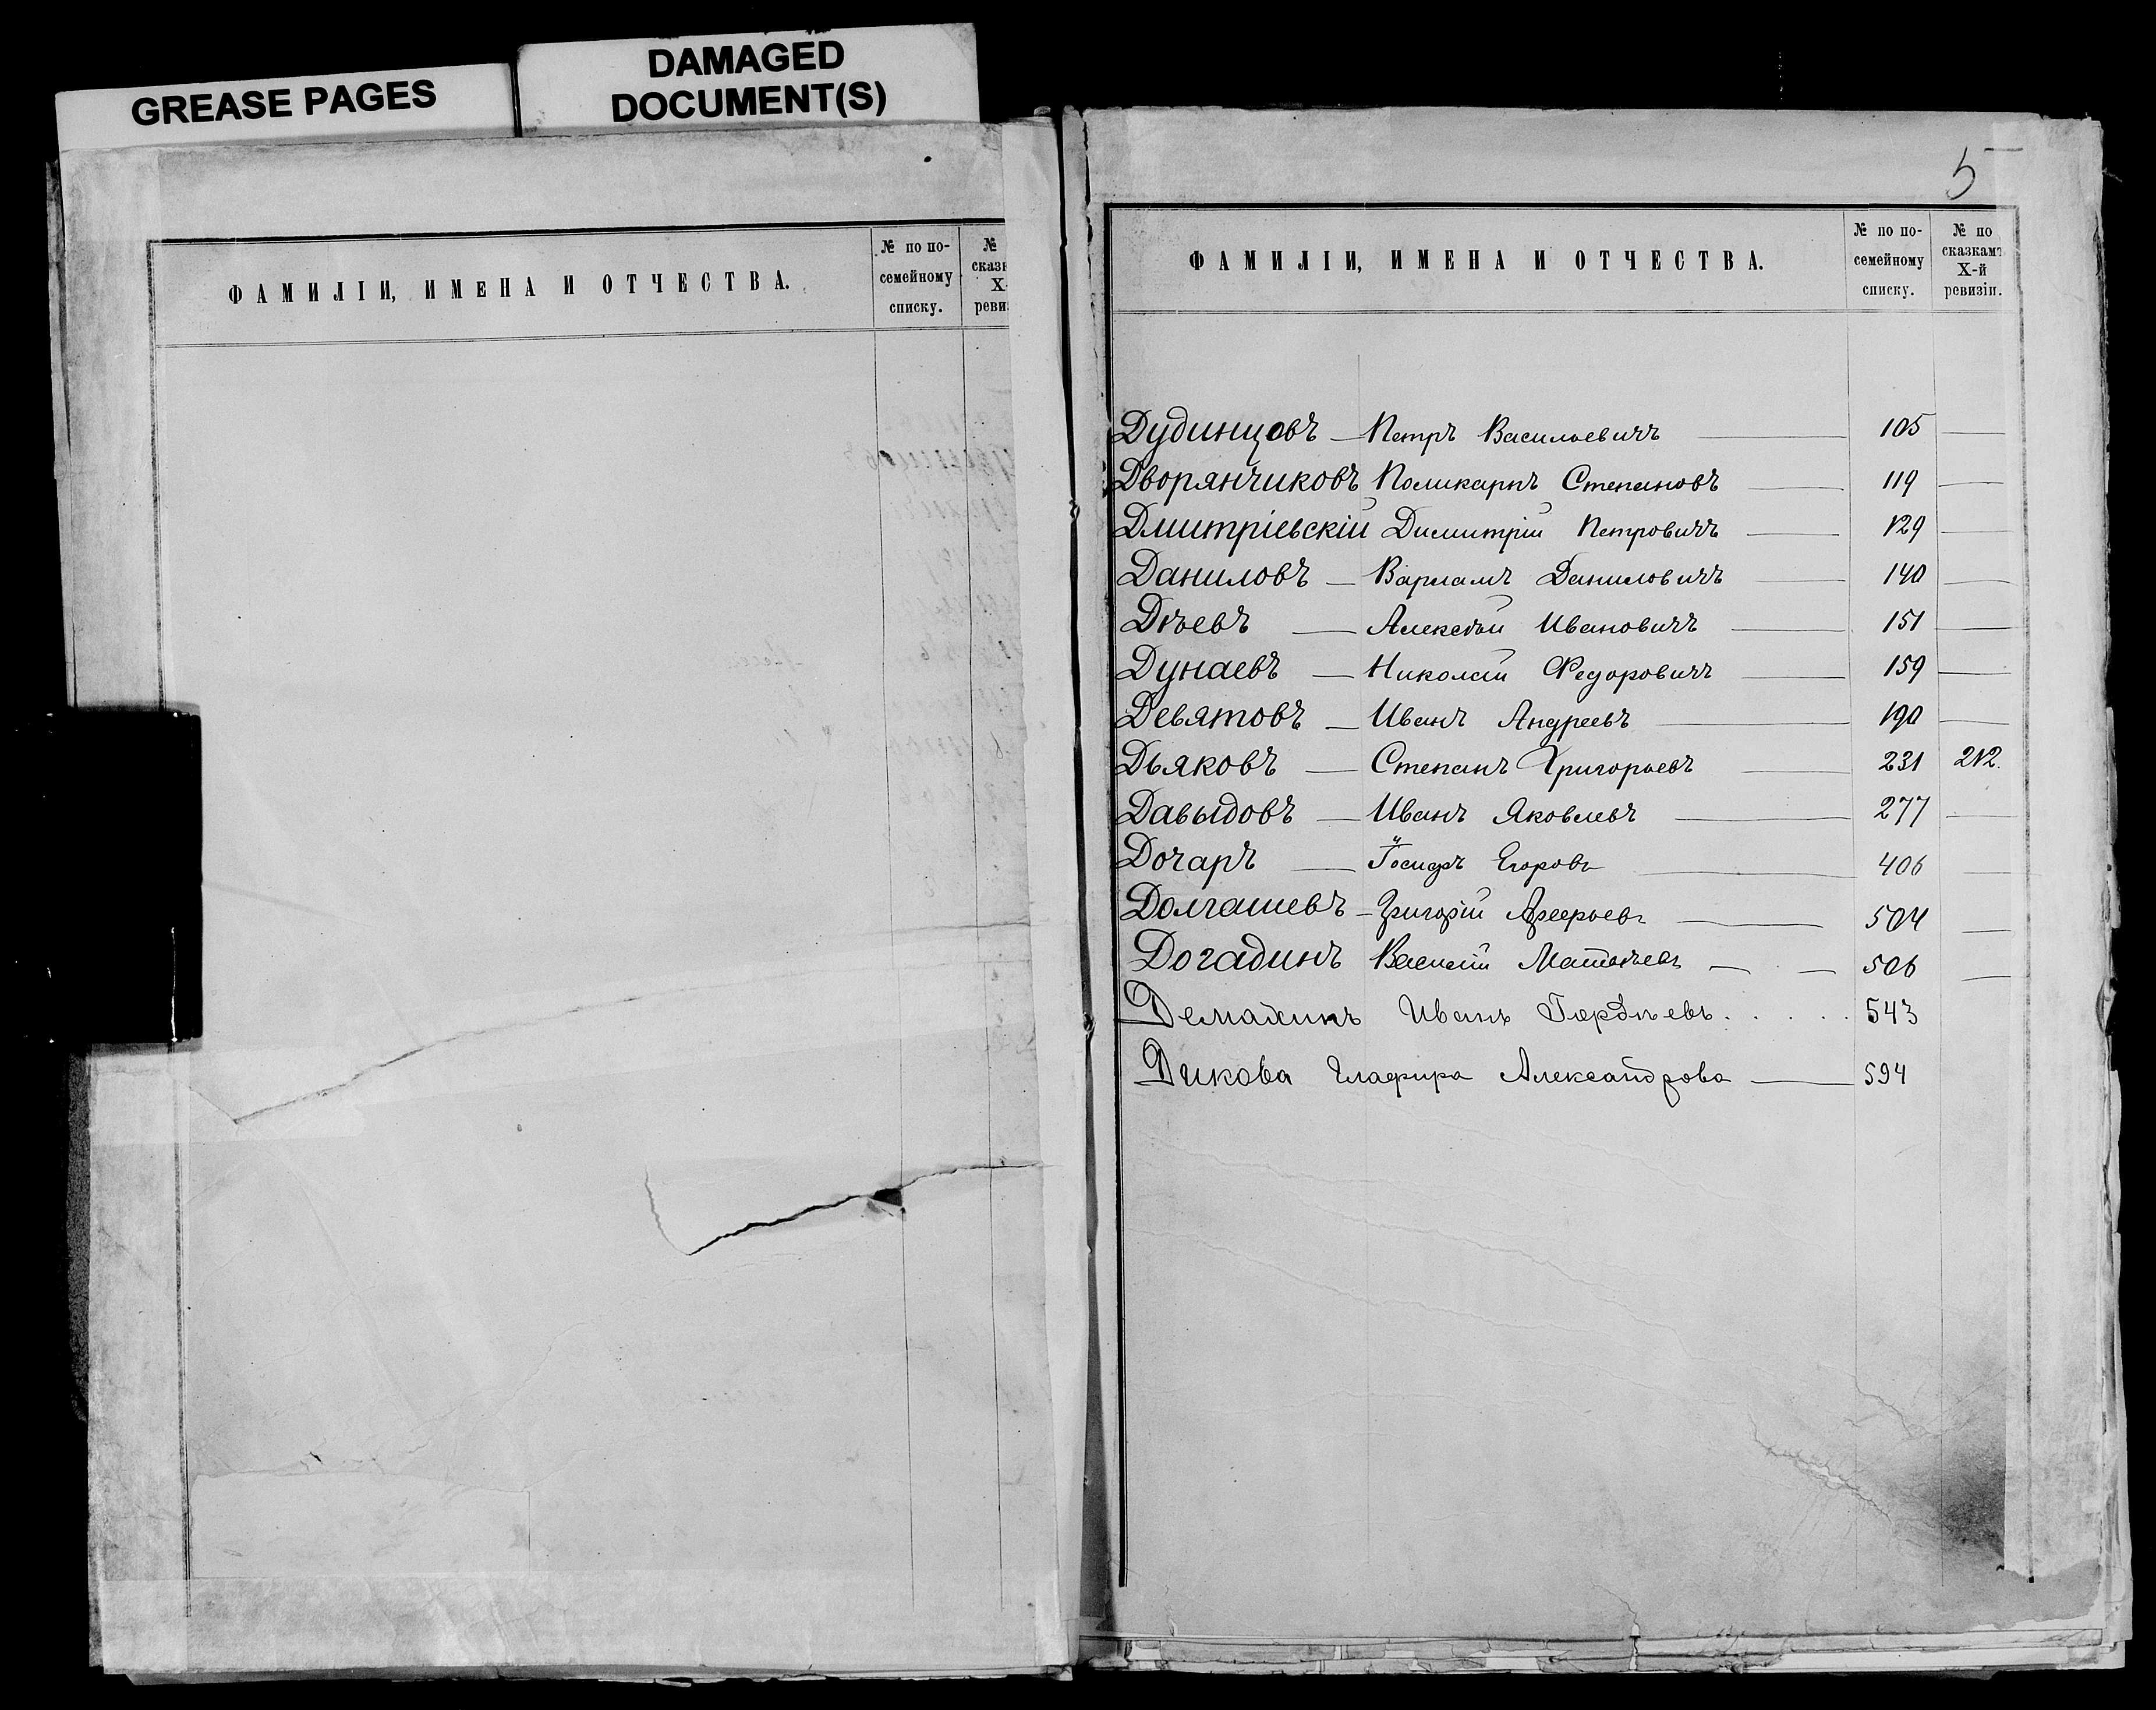 GREASE PAGES
DAMAGED
DOCUMENT(S)
ФАМИЛІИ, ИМЕНА И ОТЧЕСТВА.
№ по по-
семейному
списку.
№
сказк
X-
ревиз
5
ФАМИЛІИ, ИМЕНА И ОТЧЕСТВА.
№ по по-
семейному
списку.
№ по
сказкамъ
X-й
ревизіи.
Дудинцовъ — Петръ Васильевичъ — 105 —
Дворянчиковъ Поликарпъ Степановъ — 119 —
Дмитріевскій Димитрій Петровичъ — 129 —
Даниловъ — Варламъ Даниловичъ — 140 —
Дѣевъ — Алексѣй Ивановичъ — 151 —
Дунаевъ — Николай Федоровичъ — 159 —
Девятовъ — Иванъ Андреевъ — 190 —
Дьяковъ — Степанъ Григорьевъ — 231 212.
Давыдовъ — Иванъ Яковлевъ — 277 —
Дочаръ — Іосифъ Егоровъ — 406 —
Долгашевъ — Григорій — 504 —
Догадинъ Василій Матвѣевъ — — 506 —
Демахинъ Иванъ Гордѣевъ . . . . . 543
Дикова Глафира Александрова — 594